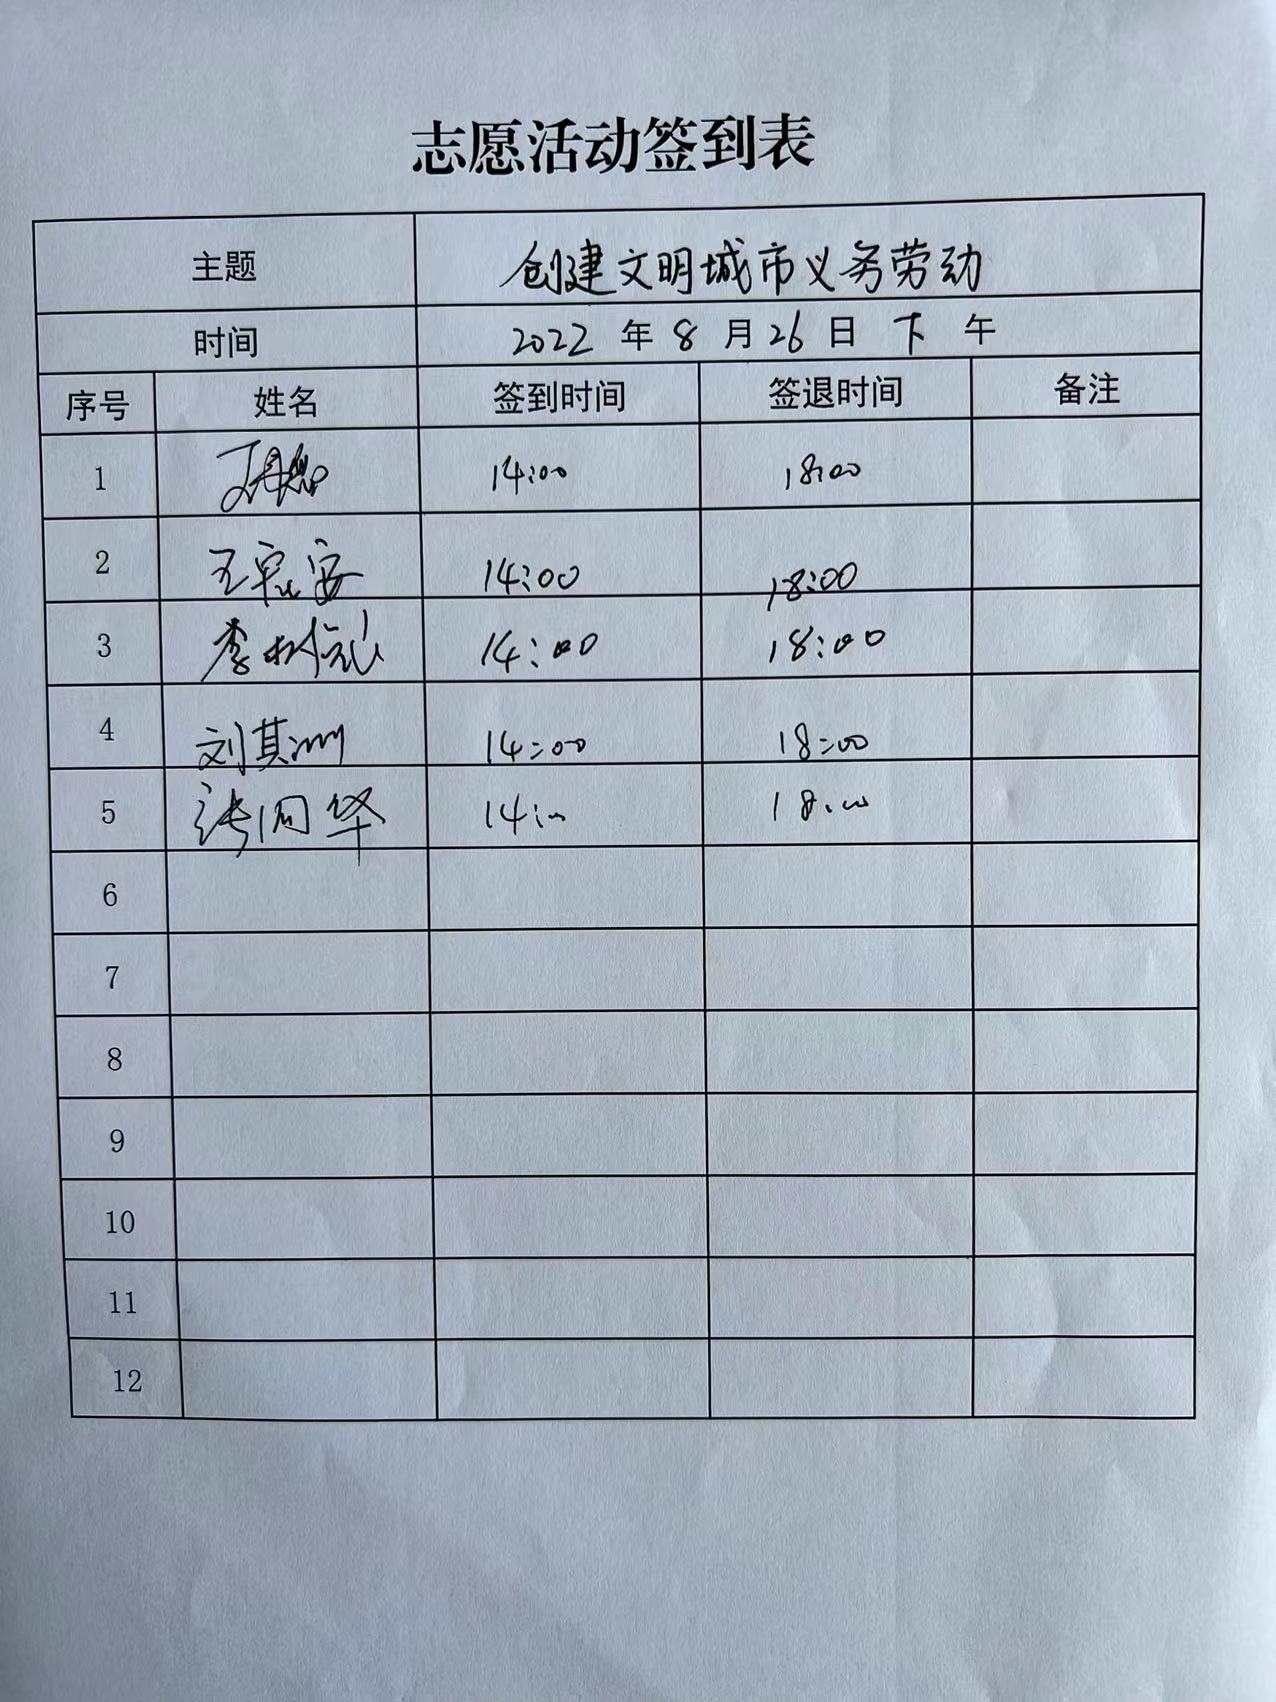 志愿活动签到表
主题 创建文明城市义务劳动
时间 2022 年 8 月 26 日 下 午
序号 姓名 签到时间 签退时间 备注
1 14:00 18:00
2 王 安 14:00 18:00
3 李树 14:00 18:00
4 刘其 14:00 18:00
5 张同华 14:00 18:00
6
7
8
9
10
11
12